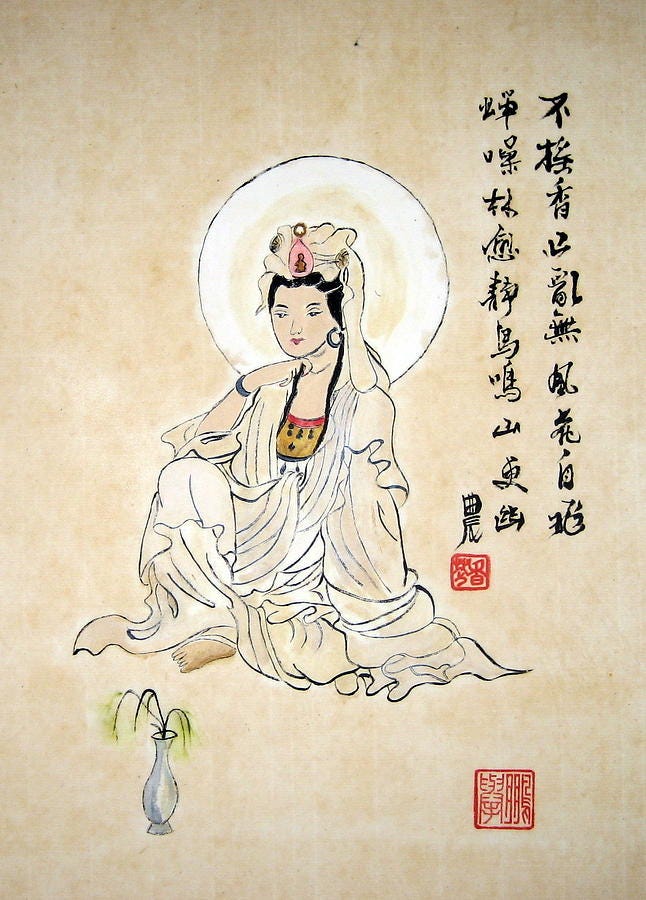 不搖香已亂無風花自飛
蟬噪林愈靜鳥鳴山更幽
農
鵬